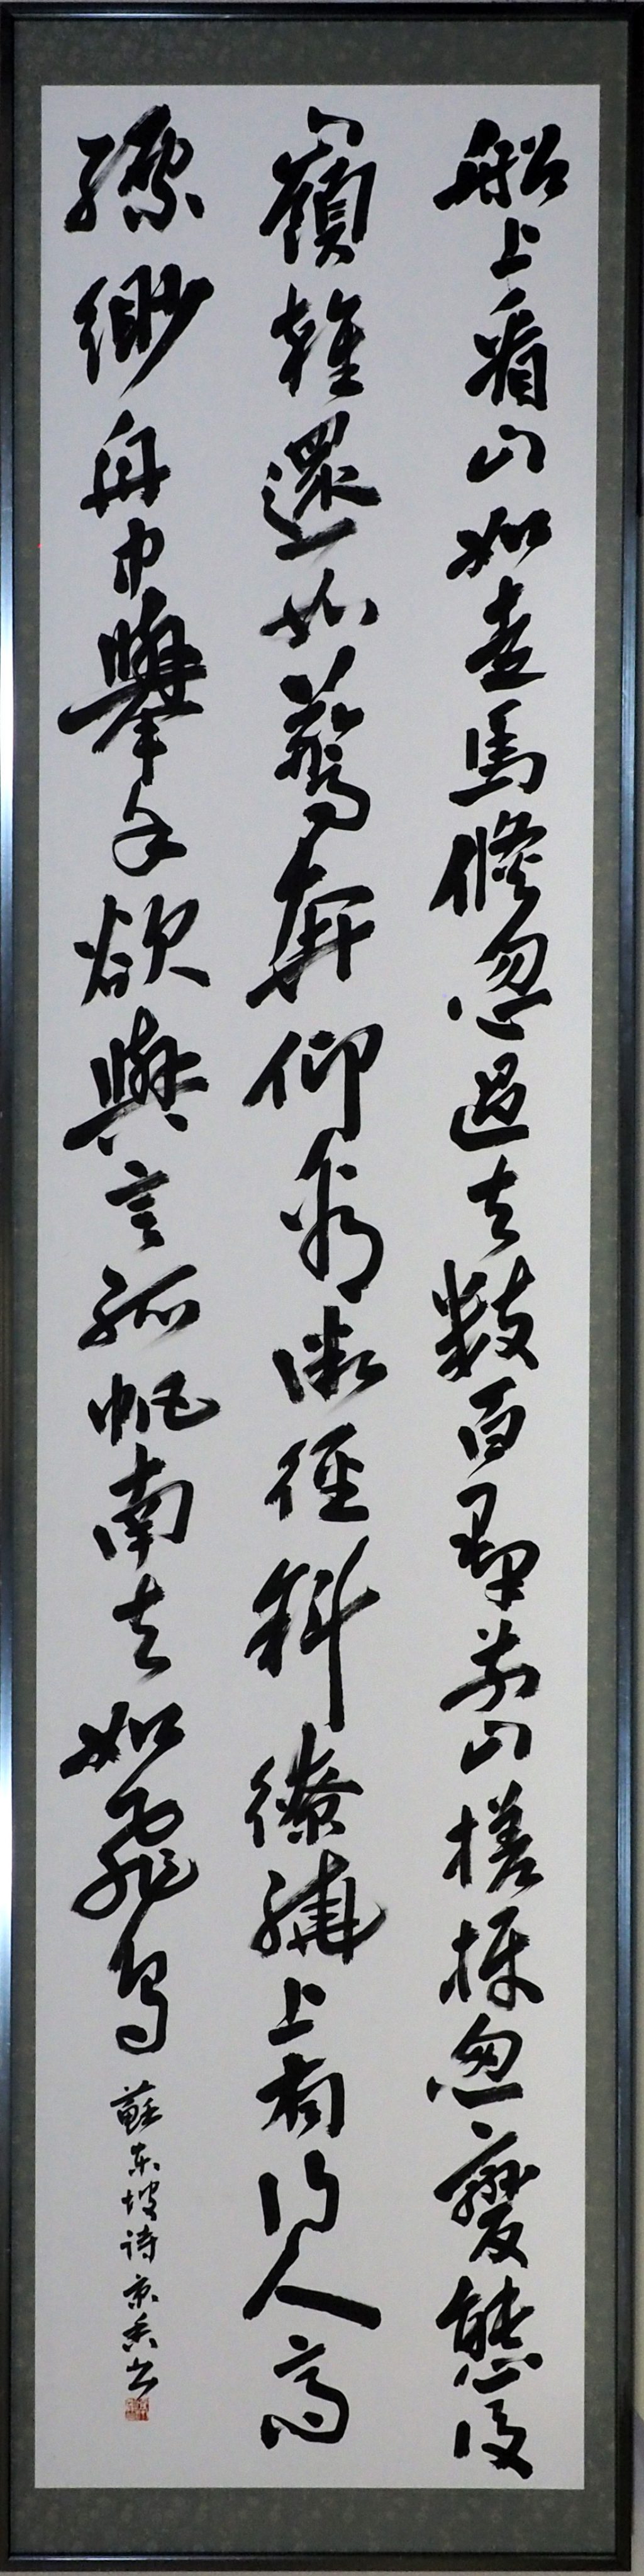 船上看山如走馬倏忽過去數百群前山槎枒忽變態後
嶺雜遝如驚奔仰看微徑斜繚繞上有行人高
縹緲舟中舉手欲與言孤帆南去如飛鳥 蘇東坡詩 京香書